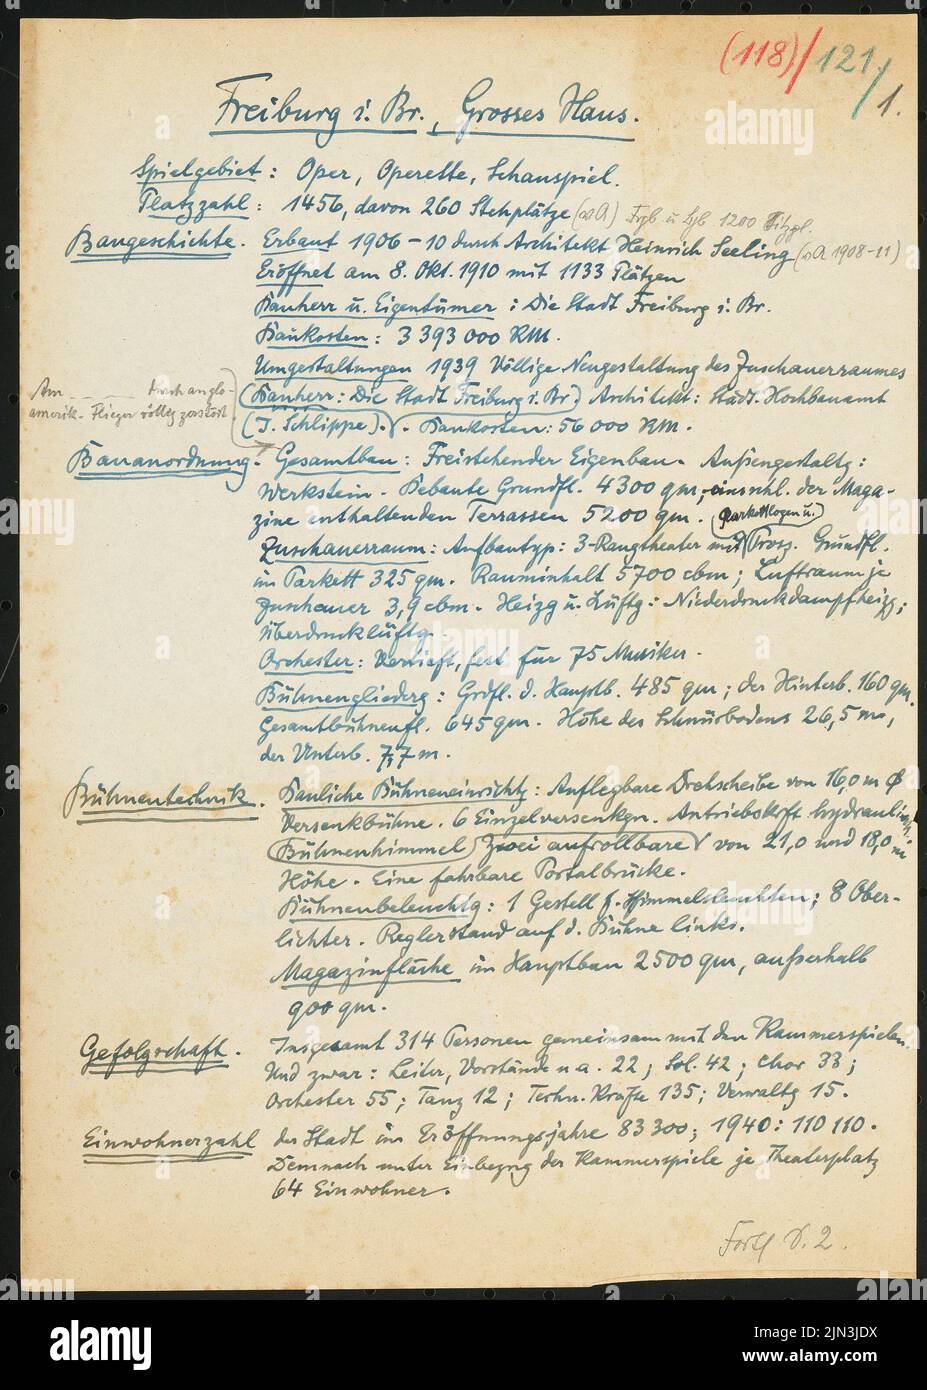 (118)/121/1.
Freiburg i. Br., Grosses Haus.
Spielgebiet: Oper, Operette, Schauspiel.
Platzzahl: 1456, davon 260 Stehplätze (vA) Frgb u. Lgb 1200 Sitzpl.
Baugeschichte. Erbaut 1906-10 durch Architekt Heinrich Seeling (vA 1908-11)
Eröffnet am 8. Okt. 1910 mit 1133 Plätzen
Bauherr u. Eigentümer: Die Stadt Freiburg i. Br.
Baukosten: 3 393 000 RM.
Umgestaltungen 1939 Völlige Neugestaltung des Zuschauerraumes
(Bauherr: Die Stadt Freiburg i. Br.) Architekt: Städt. Hochbauamt
(J. Schlippe). Baukosten: 56 000 RM.
Am ____ durch anglo-
amerik. Flieger völlig zerstört.
Bauanordnung. Gesamtbau: Freistehender Eigenbau. Außengestaltg:
Werkstein. Bebaute Grundfl. 4300 qm, einschl. der Maga-
zine enthaltenden Terrassen 5200 qm.
Parkettlogen u.
Zuschauerraum: Aufbautyp: 3-Rangtheater mit Prosz. Grundfl.
im Parkett 325 qm. Rauminhalt 5700 cbm; Luftraum je
Zuschauer 3,9 cbm. Heizg u. Lüftg: Niederdruckdampfheizg;
Überdrucklüftg.
Orchester: Vertieft, fest für 75 Musiker.
Bühnengliederg: Grdfl. d. Hauptb. 485 qm; der Hinterb. 160 qm.
Gesamtbühnenfl. 645 qm. Höhe des Schnürbodens 26,5 m,
der Unterb. 7,7 m.
Bühnentechnik. Bauliche Bühneneinrichtg: Auflegbare Drehscheibe von 16,0 m Ø
Versenkbühne. 6 Einzelversenkgn. Antriebskrft hydraulisch.
(Bühnenhimmel) (Zwei aufrollbare) von 21,0 und 18,0 m
Höhe. Eine fahrbare Portalbrücke.
Bühnenbeleuchtg: 1 Gestell f. Himmelsleuchten; 8 Ober-
lichter. Reglerstand auf d. Bühne links.
Magazinfläche im Hauptbau 2500 qm, außerhalb
900 qm.
Gefolgschaft. Insgesamt 314 Personen gemeinsam mit den Kammerspielen.
Und zwar: Leiter, Vorstände u a. 22; Sol. 42; Chor 33;
Orchester 55; Tanz 12; Techn. Kräfte 135; Verwaltg 15.
Einwohnerzahl der Stadt im Eröffnungsjahre 83 300; 1940: 110 110.
Demnach unter Einbezug der Kammerspiele je Theaterplatz
64 Einwohner.
S. 2.
alamy
alamy
Image ID: 2JN3JDX
www.alamy.com